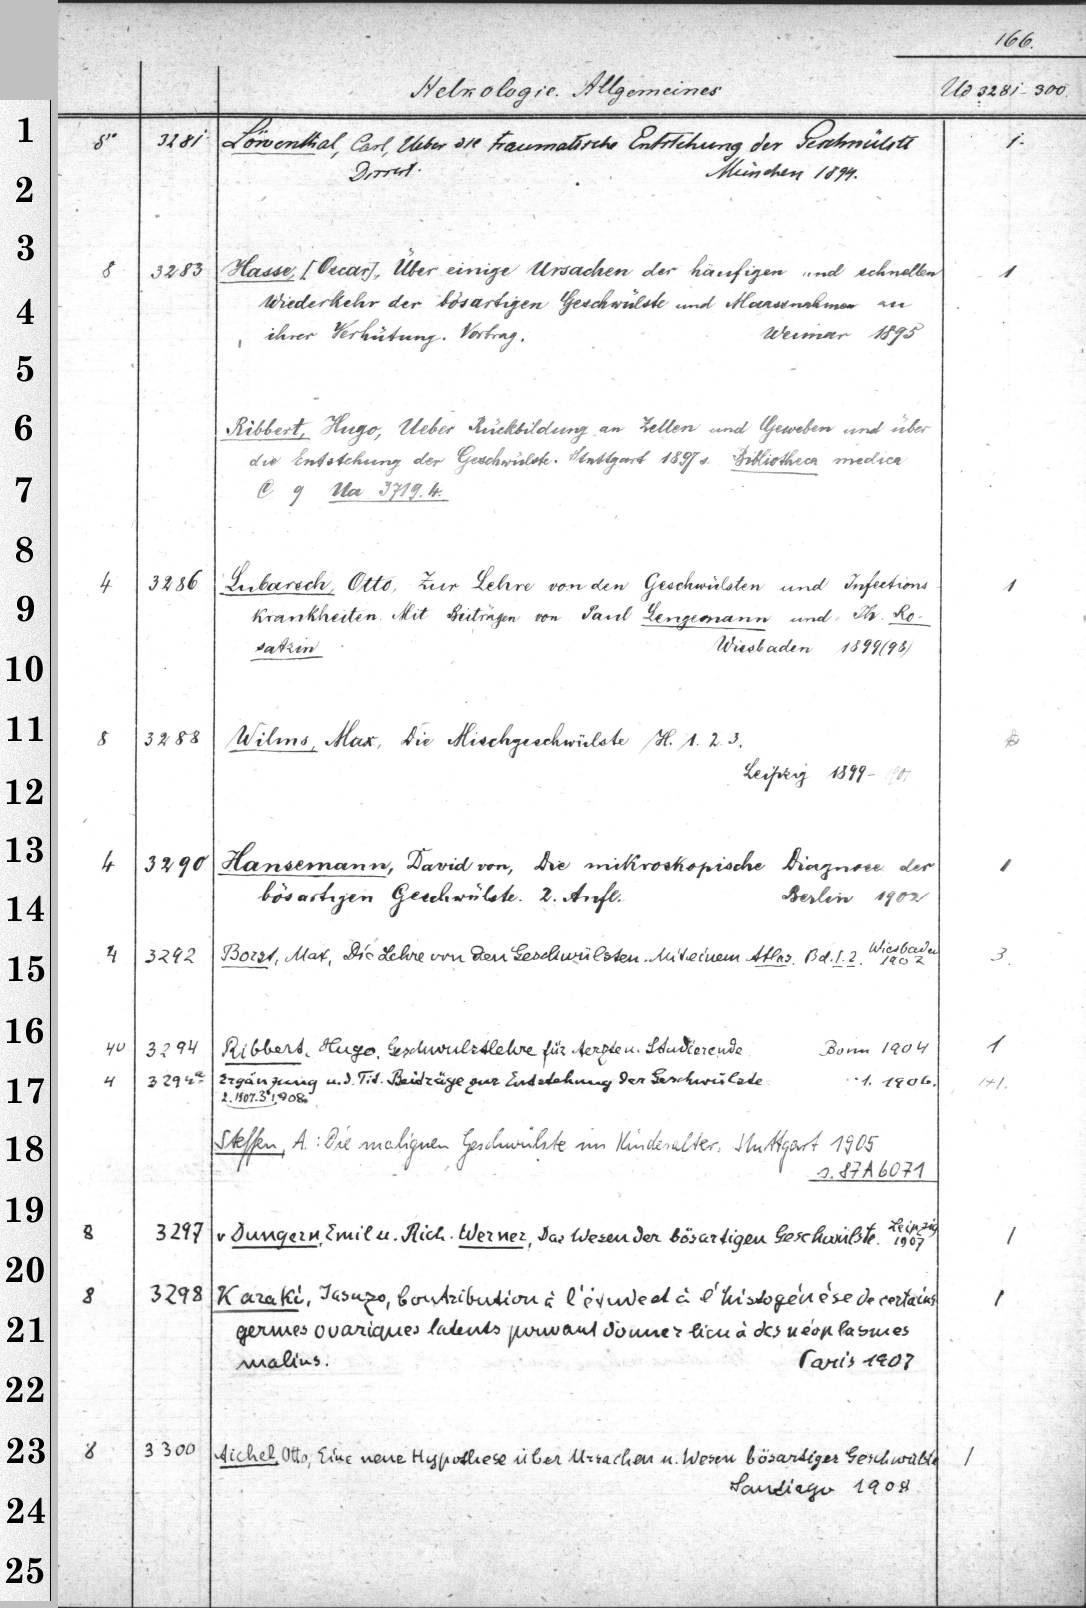 166.
Helkologie. Allgemeines Ud 3281-300.
1
8° 3281 Löwenthal, Carl, Ueber die traumatische Entstehung der Geschwülste 1.
Dissert. München 1894.
2
3
8 3283 Hasse, [Oscar], Über einige Ursachen der häufigen und schnellen 1
4
Wiederkehr der bösartigen Geschwülste und Massnahmen zu
ihrer Verhütung. Vortrag. Weimar 1895
5
6
Ribbert, Hugo, Ueber Rückbildung an Zellen und Geweben und über
die Entstehung der Geschwülste. Stuttgart 1897 s. Bibliotheca medica
7
C 9 Ua 3719.4.
8
4 3286 Lubarsch, Otto, Zur Lehre von den Geschwülsten und Infections- 1
9
krankheiten. Mit Beiträgen von Paul Lengemann und Th. Ro-
10
satzin Wiesbaden 1899(98)
11
8 3288 Wilms, Max, Die Mischgeschwülste H. 1. 2. 3.
12
Leipzig 1899-
13
4 3290 Hansemann, David von, Die mikroskopische Diagnose der 1
14
bösartigen Geschwülste. 2. Aufl. Berlin 1902
15
4 3292 Borst, Max, Die Lehre von den Geschwülsten. Mit einem Atlas. Bd. 1. 2. Wiesbaden 1902 3.
16
4° 3294 Ribbert, Hugo, Geschwulstlehre für Aerzte u. Studierende Bonn 1904 1
17
4 3294a Ergänzung u. d. Tit. Beiträge zur Entstehung der Geschwülste 1. 1906. 1+1.
2. 1907. 3. 1908
18
Steffen, A.: Die malignen Geschwülste im Kindesalter. Stuttgart 1905
s. 87A6071
19
8 3297 v Dungern, Emil u. Rich. Werner, Das Wesen der bösartigen Geschwülste. Leipzig 1907 1
20
8 3298 Karaki, Yasuzo, Contribution à l'étude et à l'histogénèse de certains 1
21
germes ovariques latents pouvant donner lieu à des néoplasmes
malins. Paris 1907
22
23
8 3300 Aichel, Otto, Eine neue Hypothese über Ursachen u. Wesen bösartiger Geschwülste 1
Santiago 1908
24
25